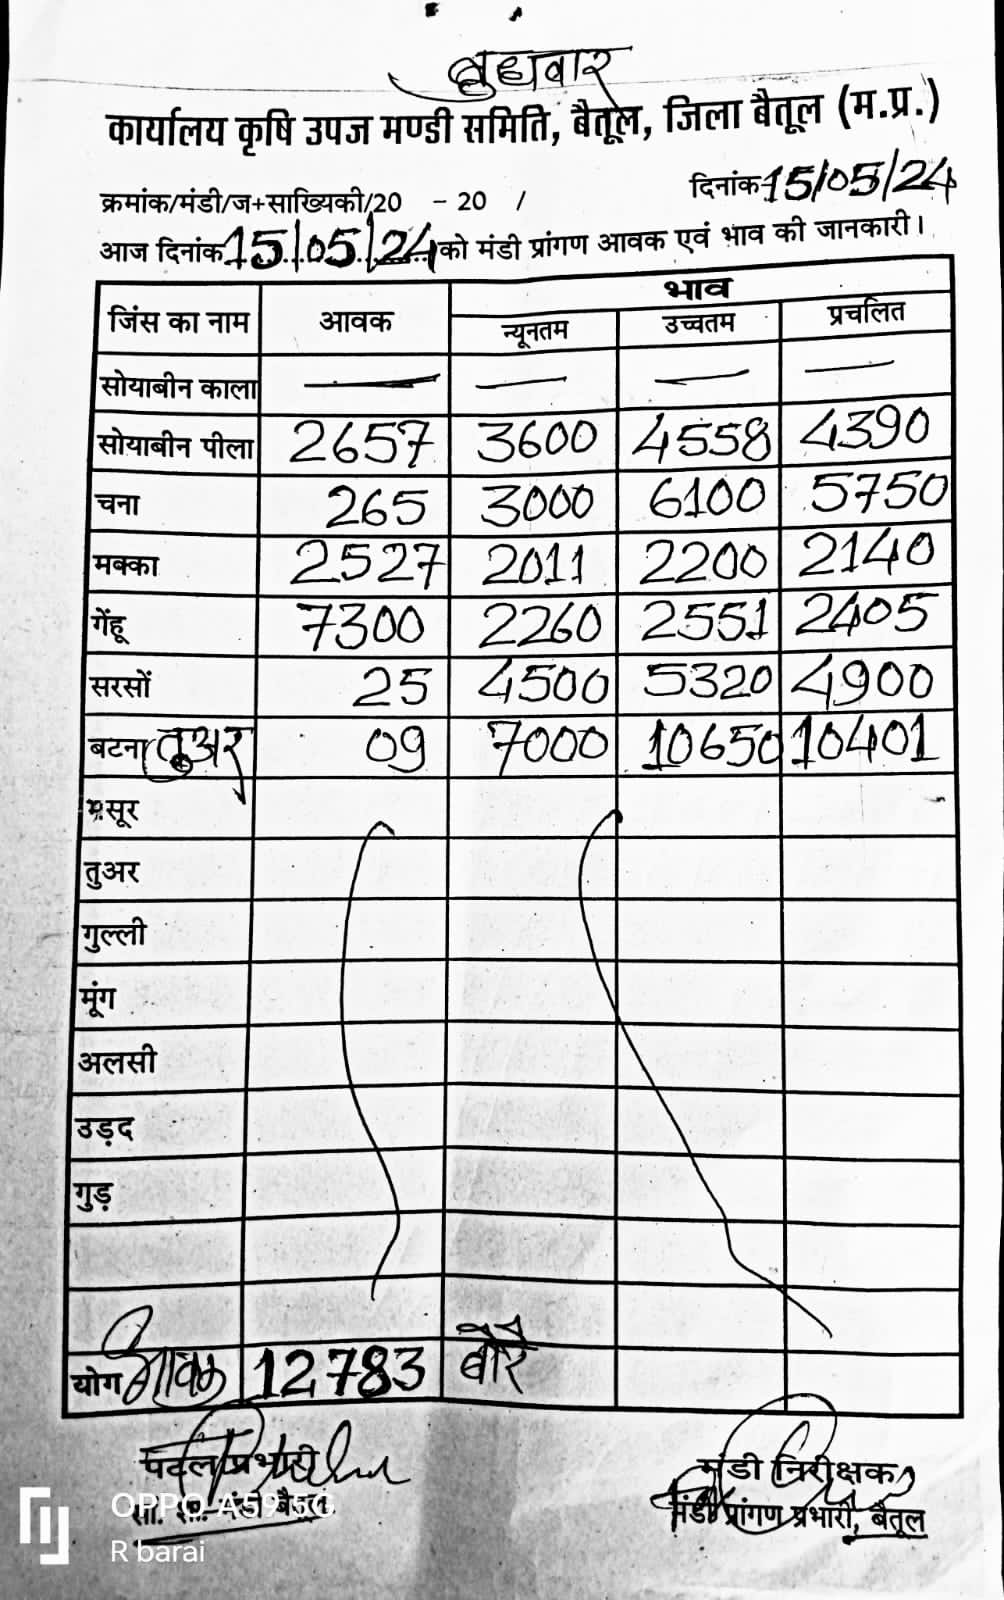 बुधवार
कार्यालय कृषि उपज मण्डी समिति, बैतूल, जिला बैतूल (म.प्र.)
दिनांक 15/05/24
क्रमांक/मंडी/ज+साख्यिकी/20 - 20 /
आज दिनांक 15/05/24 को मंडी प्रांगण आवक एवं भाव की जानकारी।
जिंस का नाम आवक भाव
न्यूनतम उच्चतम प्रचलित
सोयाबीन काला — — — —
सोयाबीन पीला 2657 3600 4558 4390
चना 265 3000 6100 5750
मक्का 2527 2011 2200 2140
गेंहू 7300 2260 2551 2405
सरसों 25 4500 5320 4900
बटना तुअर 09 7000 10650 10401
मसूर
तुअर
गुल्ली
मूंग
अलसी
उड़द
गुड़
योग आवक 12783 बोरे
घटल प्रभारी मंडी निरीक्षक
मंडी बैतूल मंडी प्रांगण प्रभारी, बैतूल
OPPO A59 5G
R barai